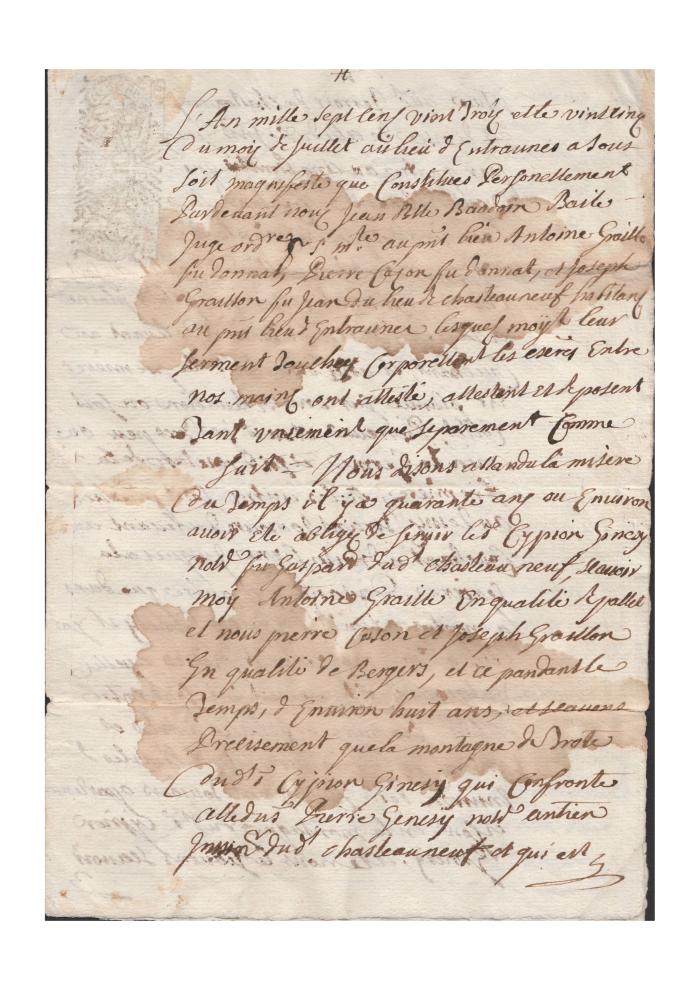 L'An mille sept cens vint trois et le vintcinq
du mois de Juillet au lieu d'Entraunes a tous
soit magnifeste que Constitues Personellement
Pardevant nous Jean Bte Baudoin Baile
Juge ordre au pnt lieu Antoine Graille
fu donnat, Pierre Cozon fu donnat, et Joseph
Graillon fu Jean du lieu de chasteauneuf habitans
au pnt lieu d'Entraunes lesquels moyt leur
serment touches Corporellemt les Entre
nos mains ont attesté, attestent et deposent
tant uniement que separement Comme
suit = Nous disons attandu la misere
du temps il y a quarante ans ou Environ
avoir ete obliges de servir le sr Cypion Ginesy
notre fu Gaspard dudt chasteauneuf, scavoir
moy Antoine Graille En qualité de vallet
et nous pierre Coson et Joseph Graillon
En qualité de Bergers, et ce pandant le
temps, d'Environ huit ans, et scavons
Precisement que la montagne de
dudt sr Cypion Ginesy qui Confronte
alledus Pierre Genesy notre antien
dudt chasteauneuf et qui est